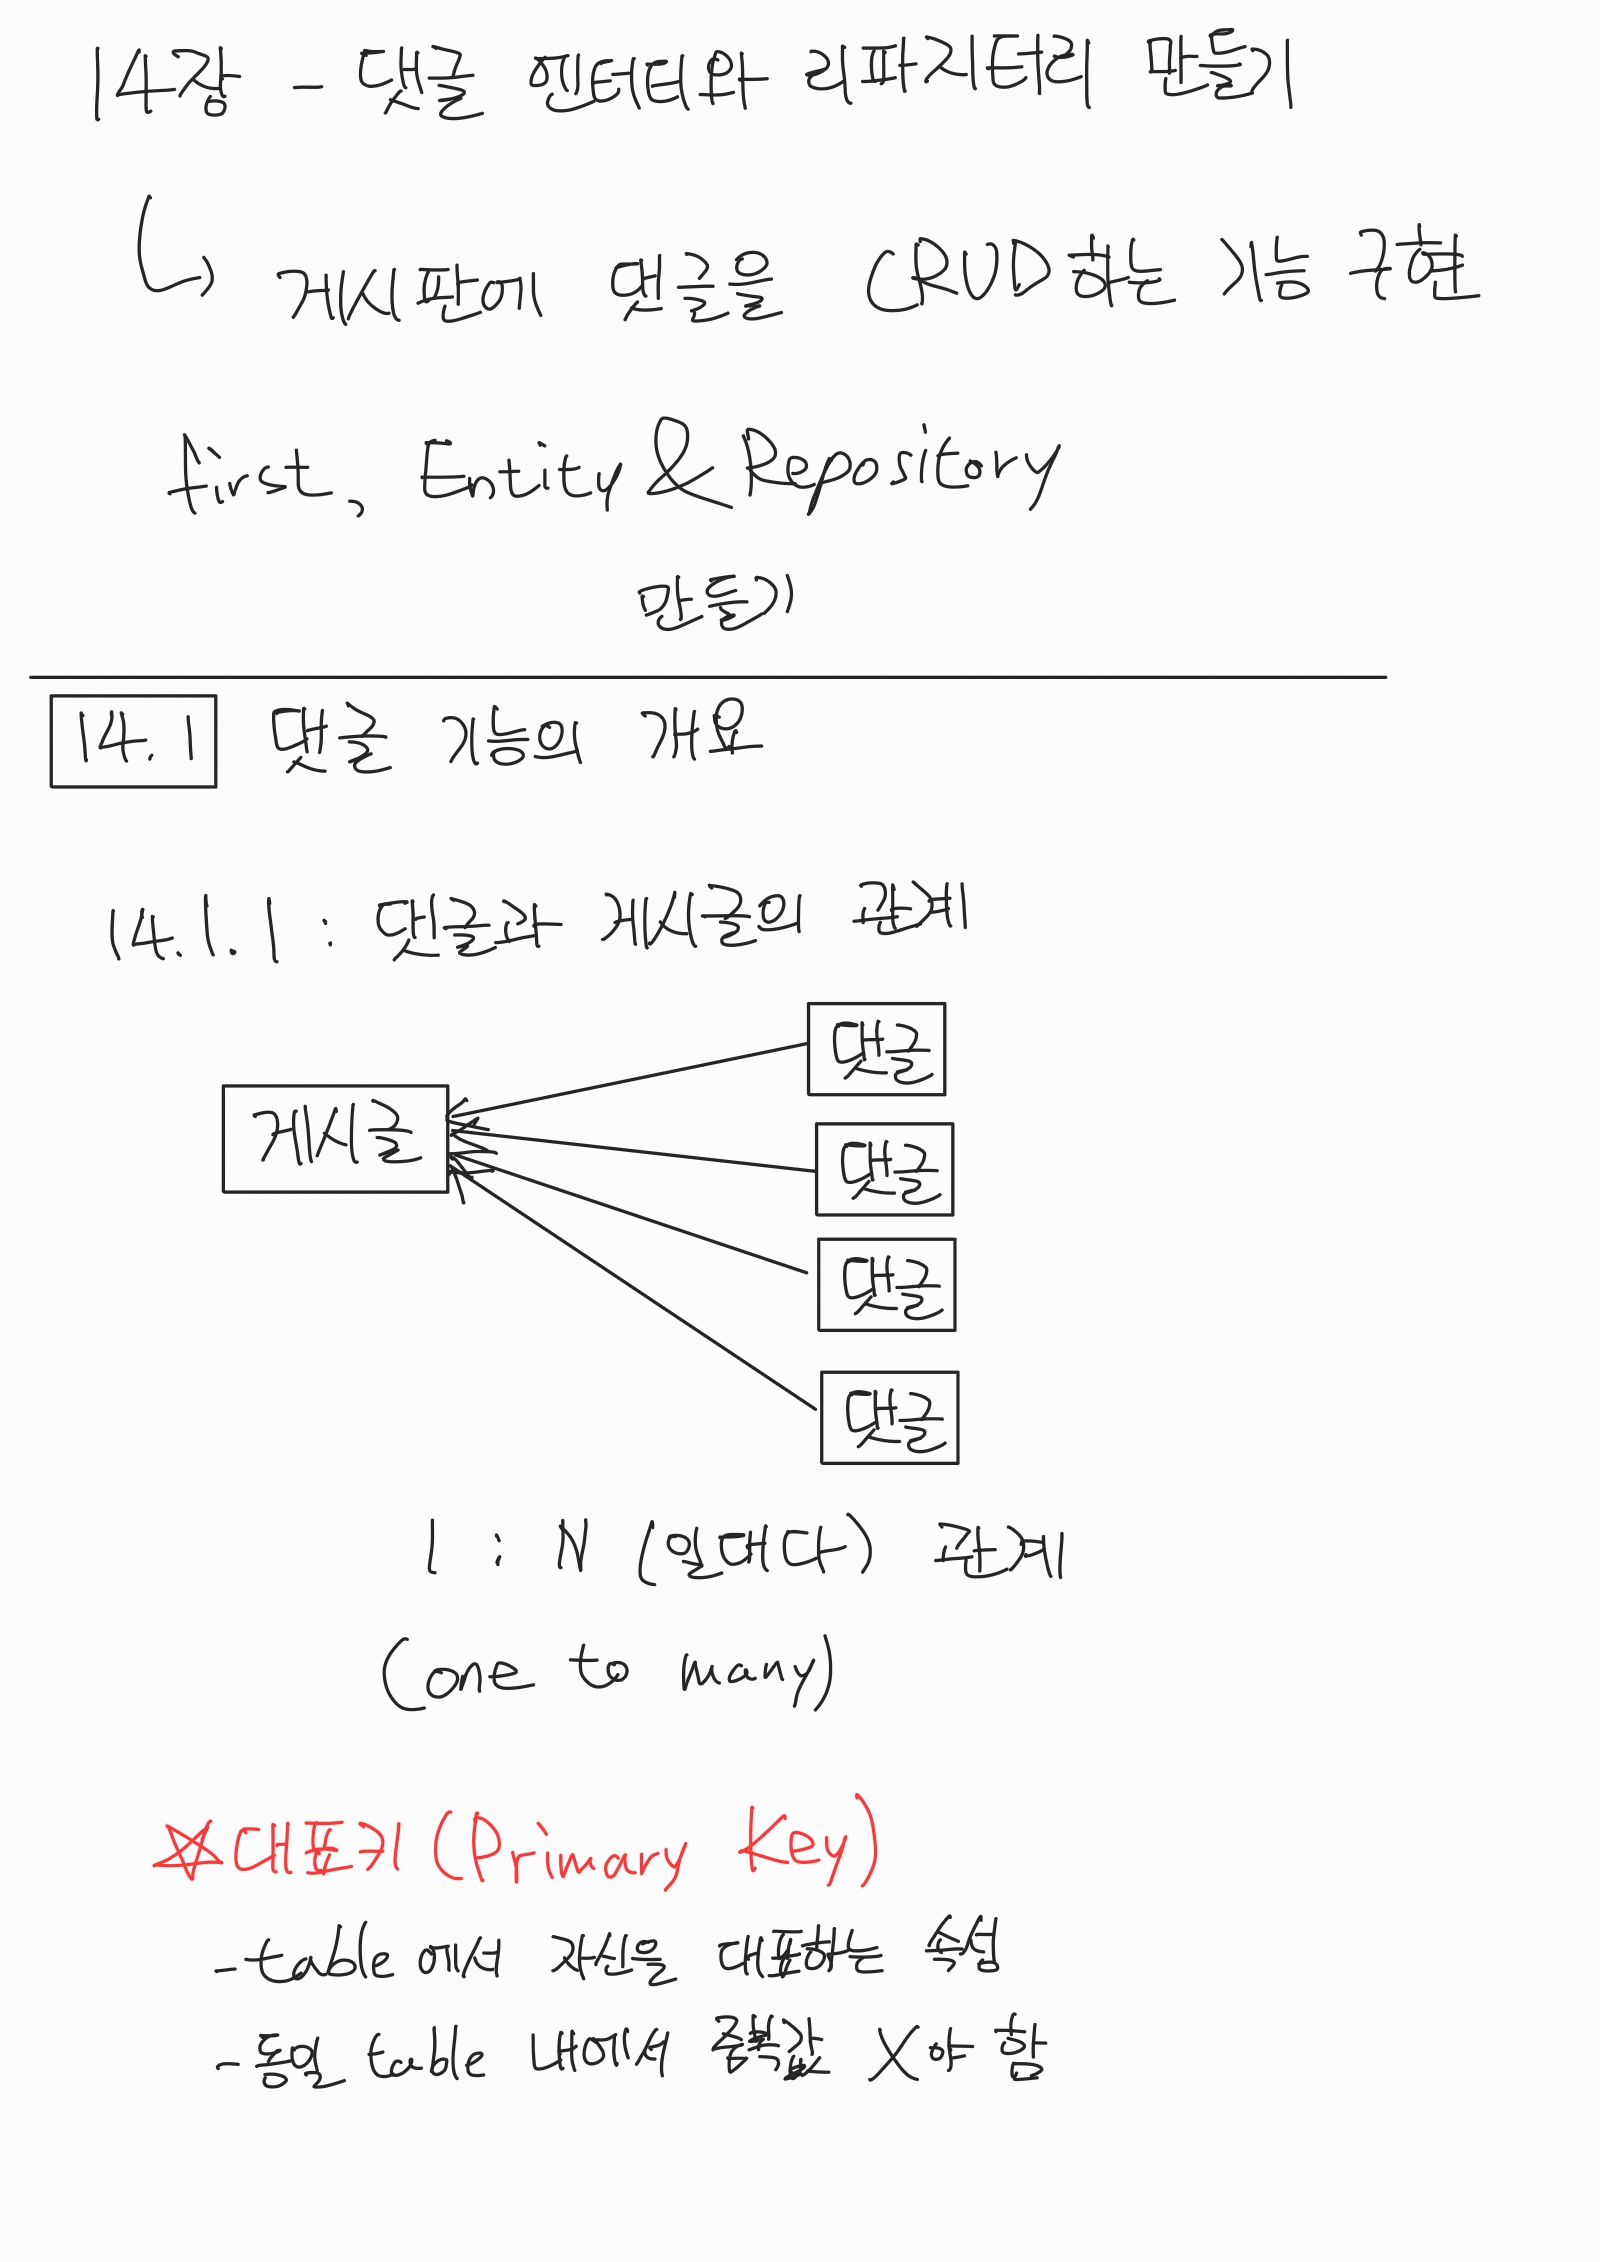 14장 - 댓글 엔터티와 리파지터리 만들기
게시판에 댓글을 CRUD하는 기능 구현
first, Entity & Repository
만들기
14.1 댓글 기능의 개요
14.1.1 : 댓글과 게시글의 관계
댓글
게시글
댓글
댓글
댓글
1 : N (일대다) 관계
(one to many)
☆대표키 (Primary Key)
- table에서 자신을 대표하는 속성
- 동일 table 내에서 중복값 X야 함